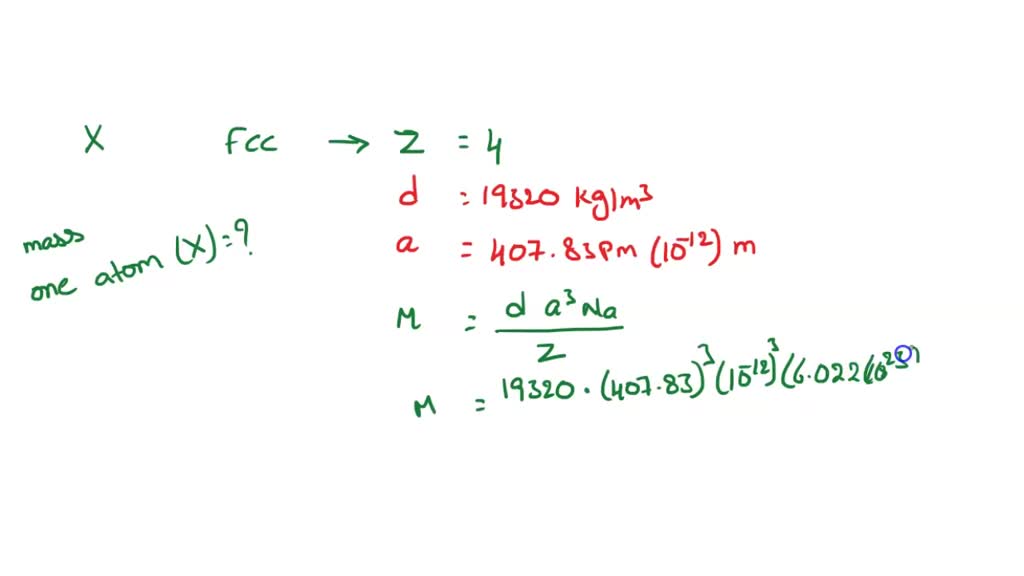 X FCC → Z = 4
d = 19320 kg/m³
mass
one atom (X) = ?
a = 407.83 pm (10⁻¹²) m
M = d a³ Na / Z
M = 19320 · (407.83)³ (10⁻¹²)³ (6.022(10²³)